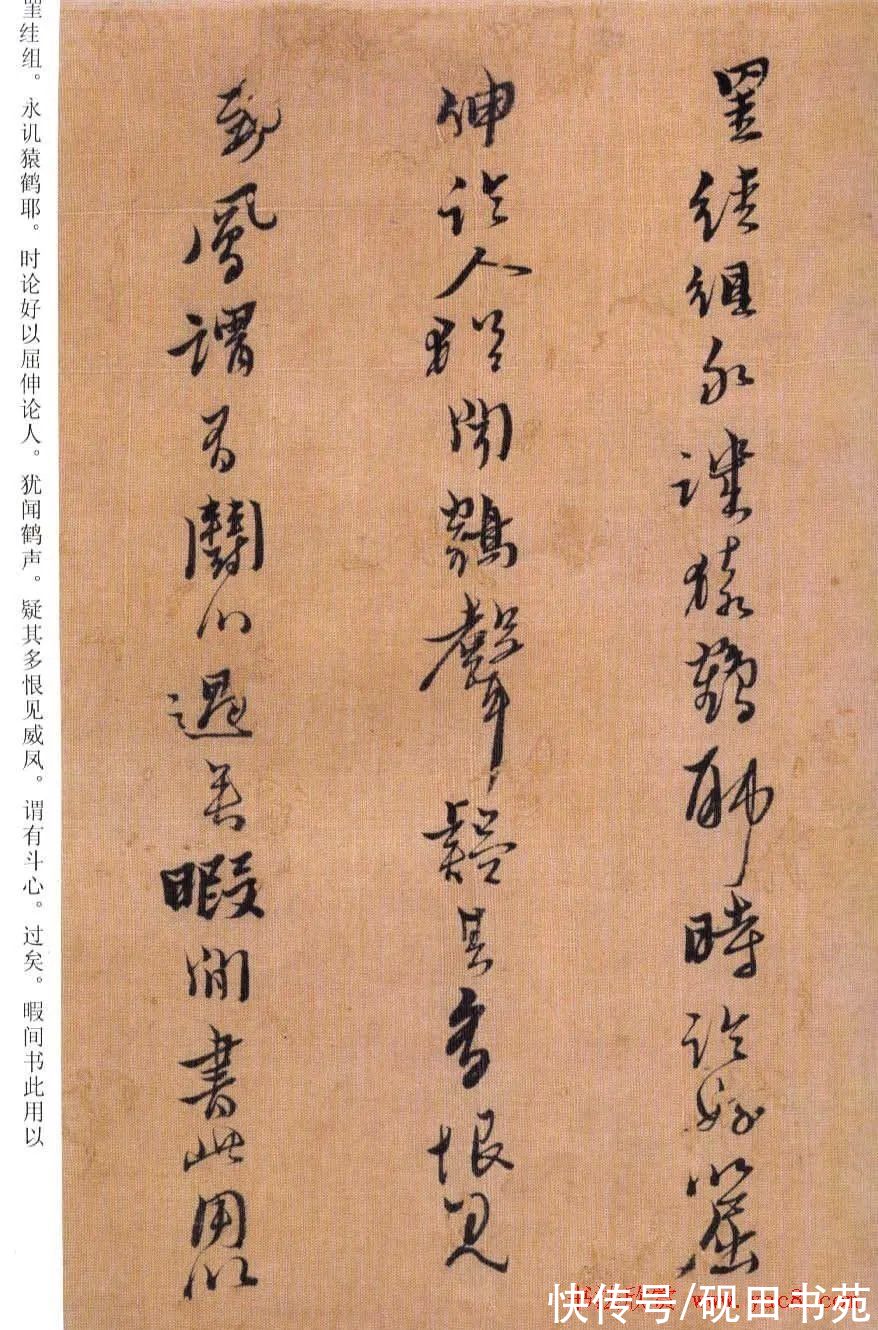 罣絓組永譏猿鶴耶時論好以屈
伸論人猶聞鶴聲疑其多恨見
威鳳謂有鬭心過矣暇間書此用以
罣絓组。永讥猿鹤耶。时论好以屈伸论人。犹闻鹤声。疑其多恨见威凤。谓有斗心。过矣。暇间书此用以
快传号/砚田书苑